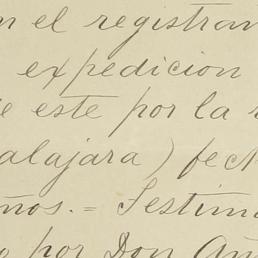 n el registran
expedicion
e este por la r
alajara) fech
ños.= Testim
o por Don An